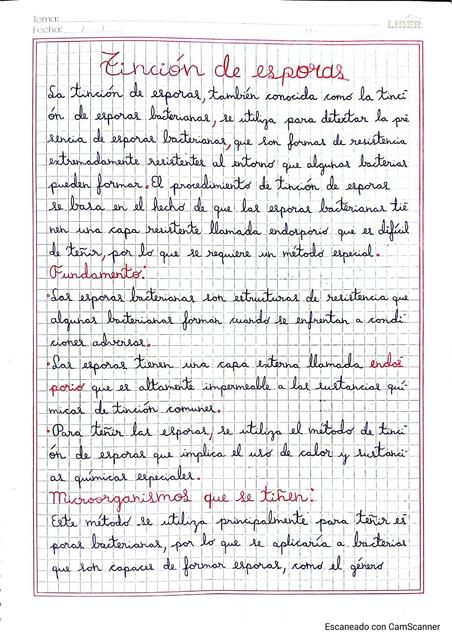 Tema:
Fecha: / /
LIDER
Tinción de esporas
La tinción de esporas, también conocida como la tinci
ón de esporas bacterianas, se utiliza para detectar la pre
sencia de esporas bacterianas, que son formas de resistencia
extremadamente resistentes al entorno que algunas bacterias
pueden formar. El procedimiento de tinción de esporas
se basa en el hecho de que las esporas bacterianas tie
nen una capa resistente llamada endosporio que es difícil
de teñir, por lo que se requiere un método especial.
Fundamento:
•Las esporas bacterianas son estructuras de resistencia que
algunas bacterianas forman cuando se enfrentan a condi
ciones adversas.
•Las esporas tienen una capa externa llamada endos
porio que es altamente impermeable a las sustancias quí
micas de tinción comunes.
•Para teñir las esporas, se utiliza el método de tinci
ón de esporas que implica el uso de calor y sustanci
as químicas especiales.
Microorganismos que se tiñen:
Este método se utiliza principalmente para teñir es
poras bacterianas, por lo que se aplicaría a bacterias
que son capaces de formar esporas, como el género
Escaneado con CamScanner